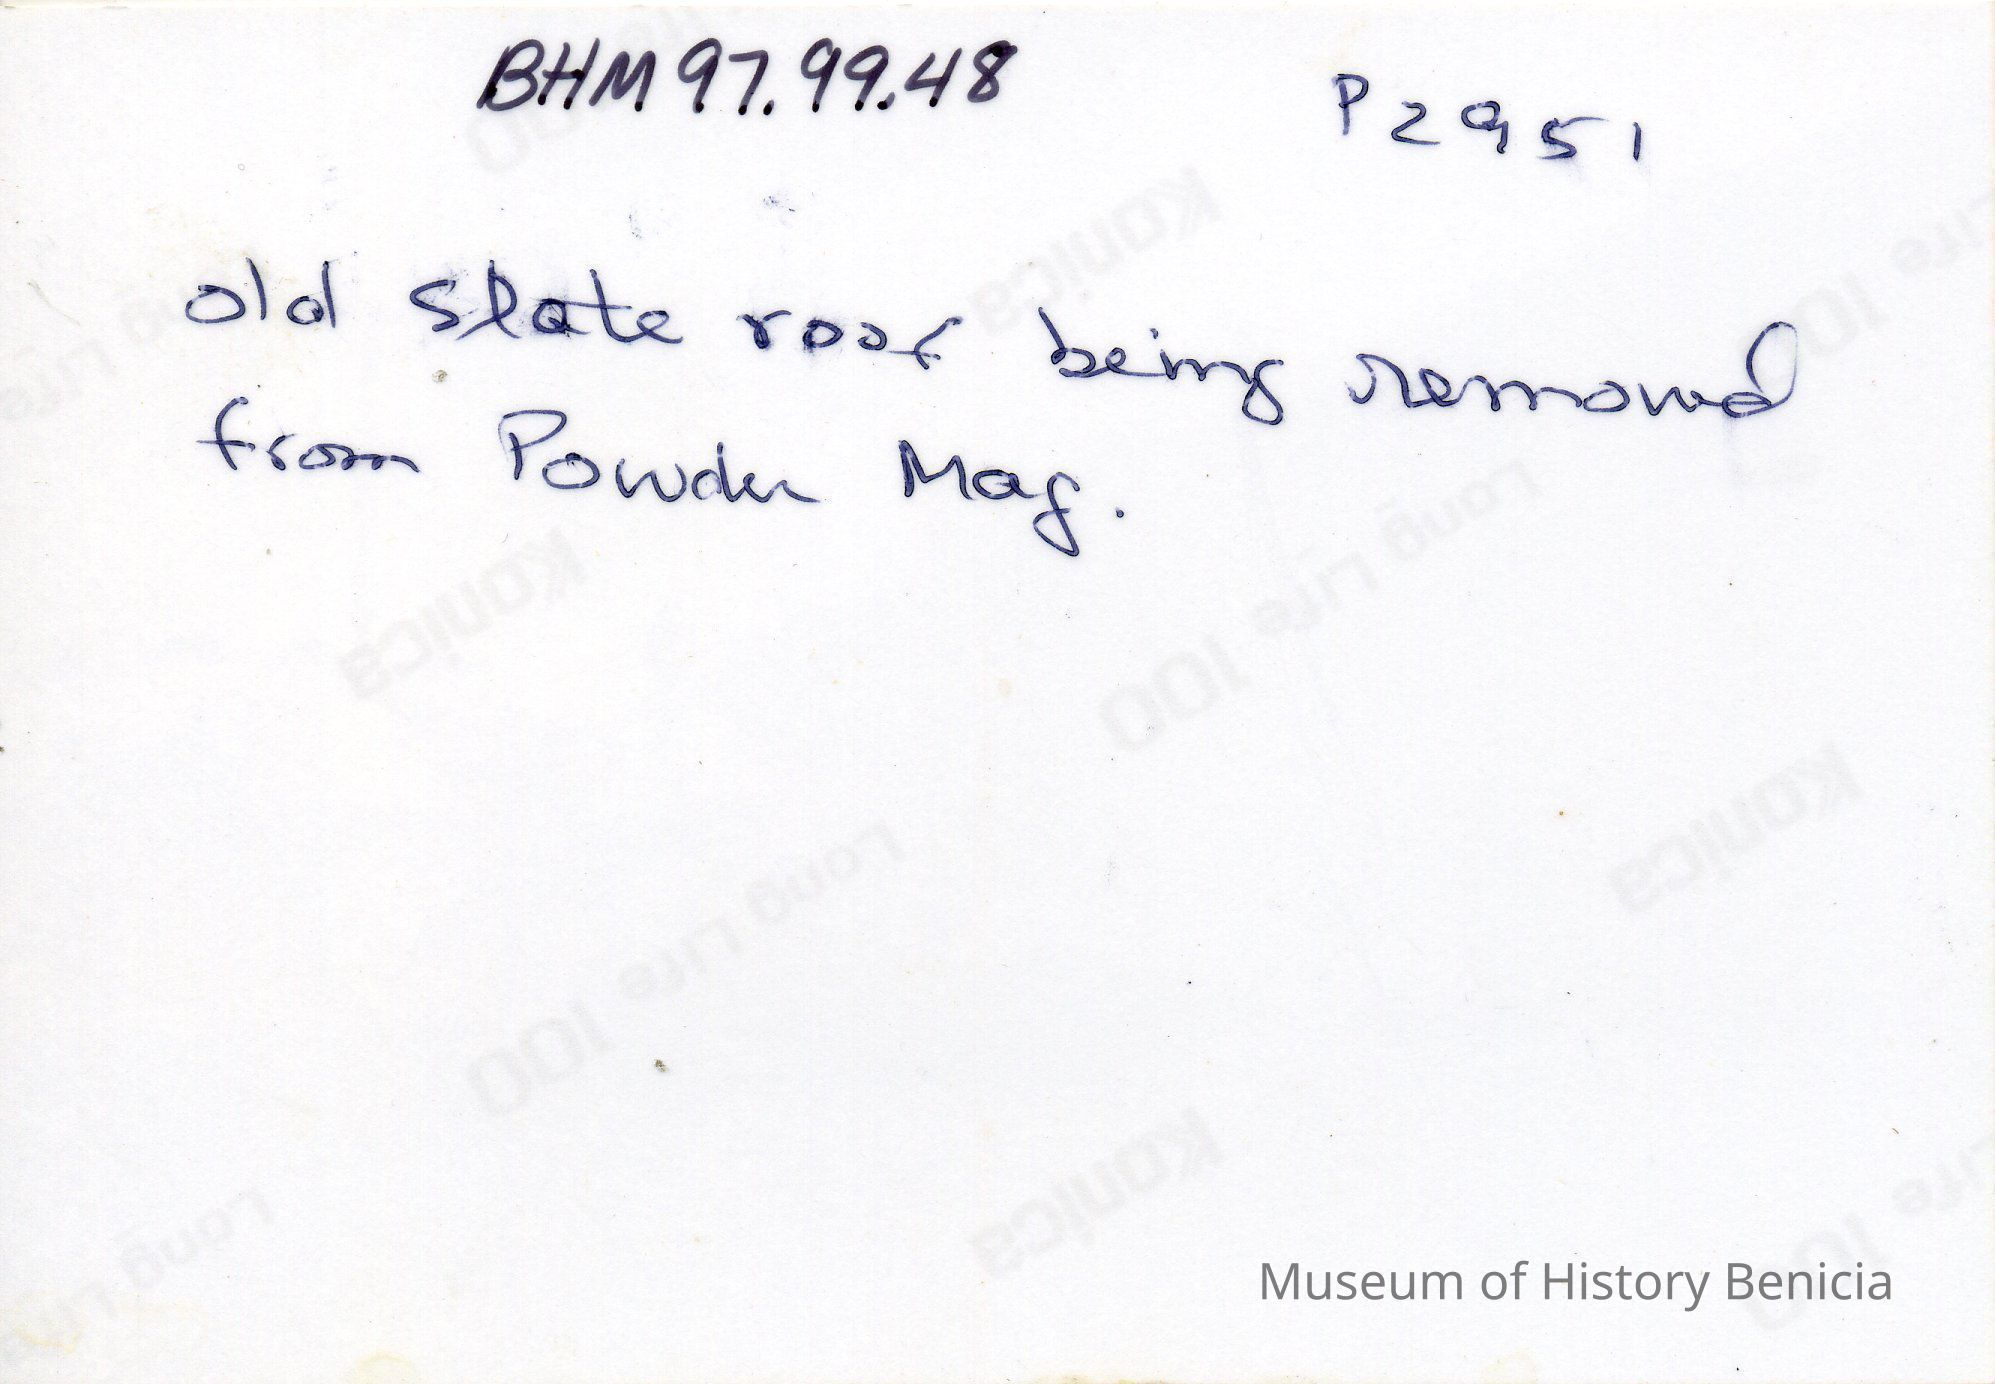 BHM 97.99.48
P2951
old slate roof being removed
from Powder Mag.
Konica
Long Life 100
Museum of History Benicia